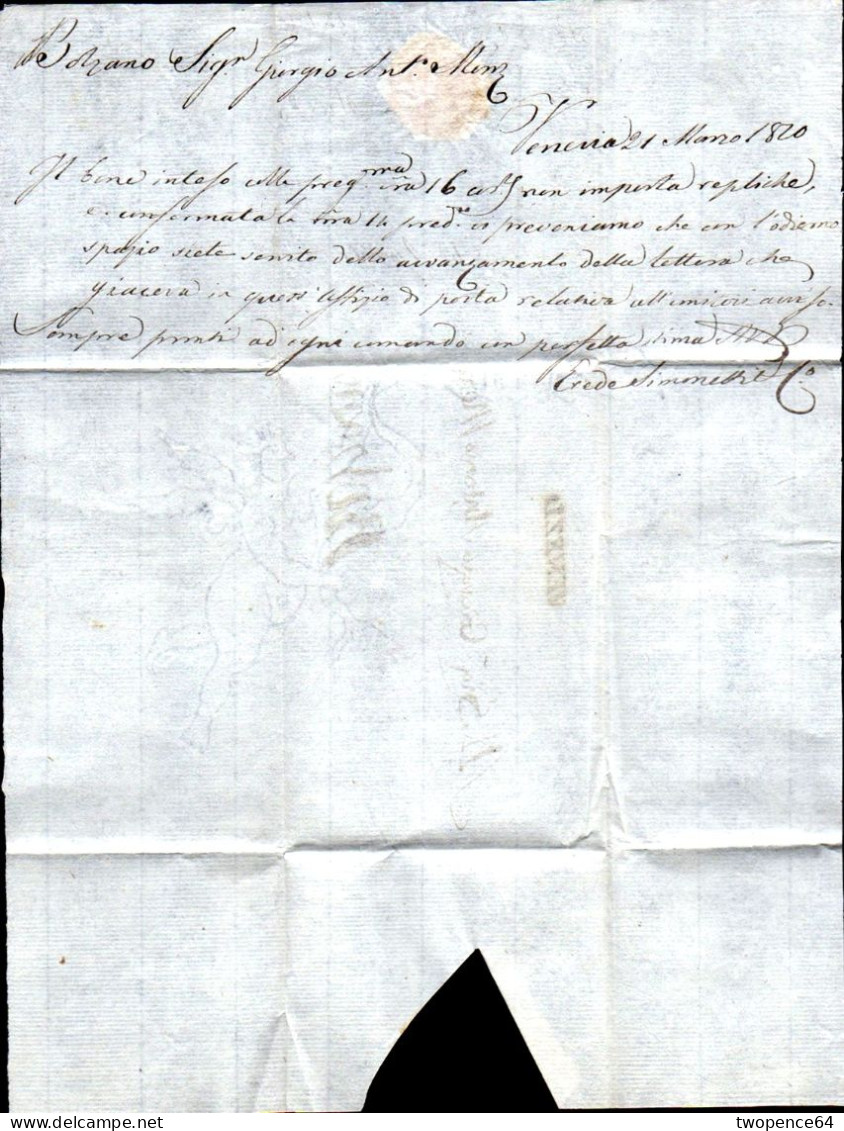 Bolzano Sigr. Giorgio Ant.o Menz
Venezia 21 Marzo 1820
Il bene inteso colla preg.ma vra 16 corr. non importa repliche,
e confermata la nra 14 pred.to vi preveniamo che con l'odierno
spazio siete servito dello avanzamento della lettera che
giaceva in quest'uffizio di posta relativa all'
Sempre pronti ad ogni comando con perfetta stima
Erede Simonetti e C.o
VENEZIA
twopence64